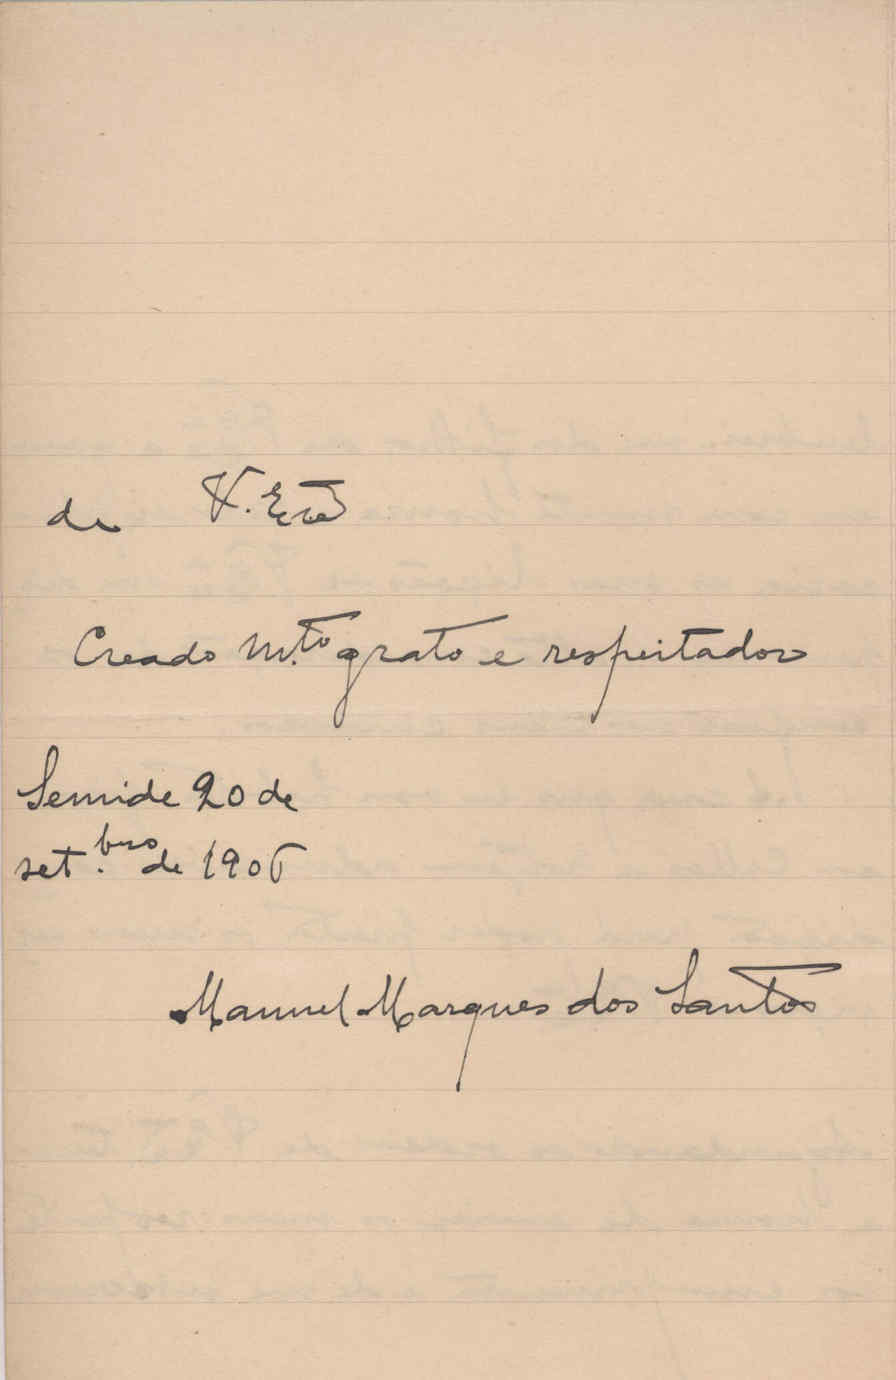 de V. Ex.ª
Creado m.to grato e respeitador
Semide 20 de
set.bro de 1906
Manuel Marques dos Santos